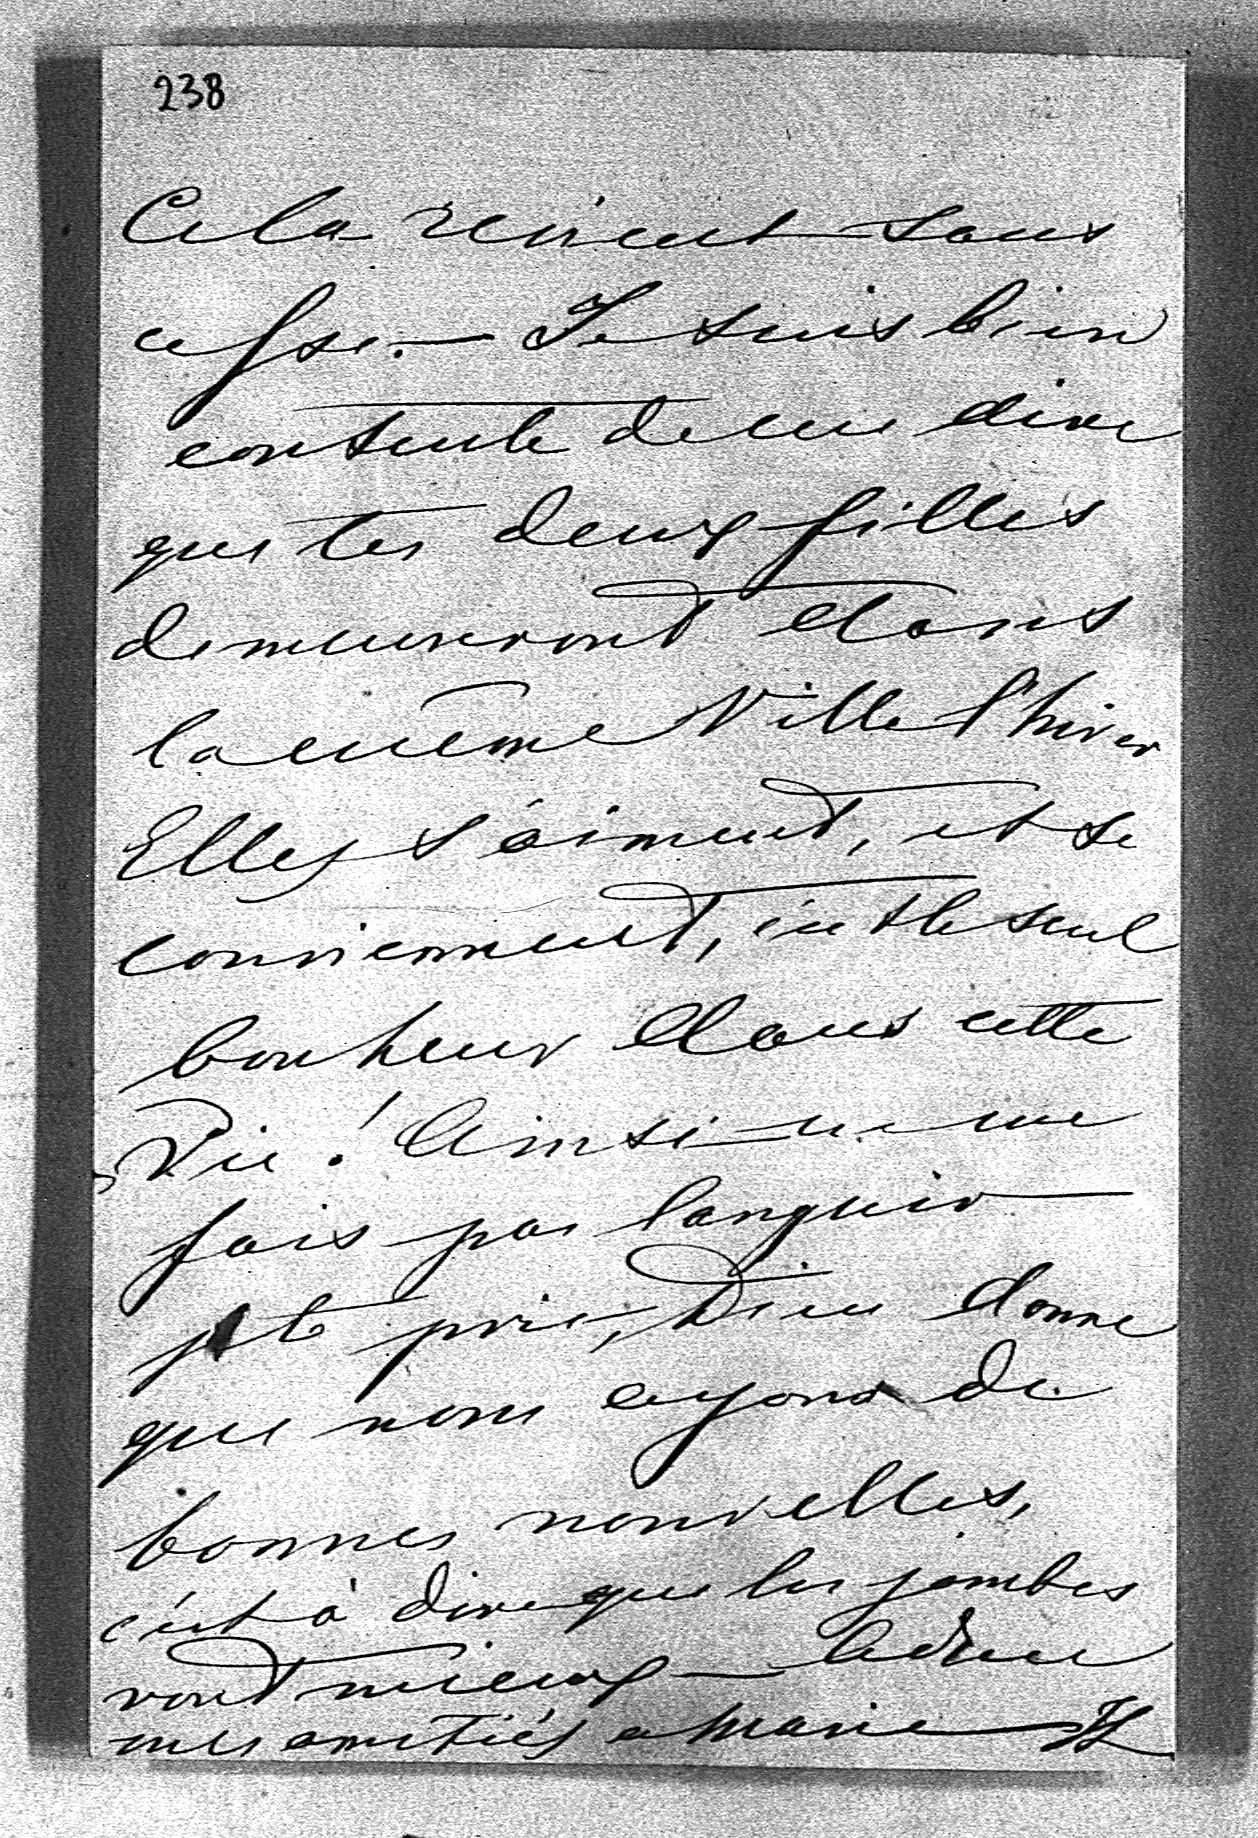 238
Cela revient sans
cesse. — Je suis bien
contente de me dire
que tes deux filles
demeureront dans
la même Ville l'hiver
Elles s'aiment, et se
conviennent, c'est le seul
bonheur dans cette
Vie! Ainsi ne me
fais pas languir
je te prie, Dieu donne
que nous ayons de
bonnes nouvelles,
c'est à dire que les jambes
vont mieux — adieu
mes amitiés a Marie